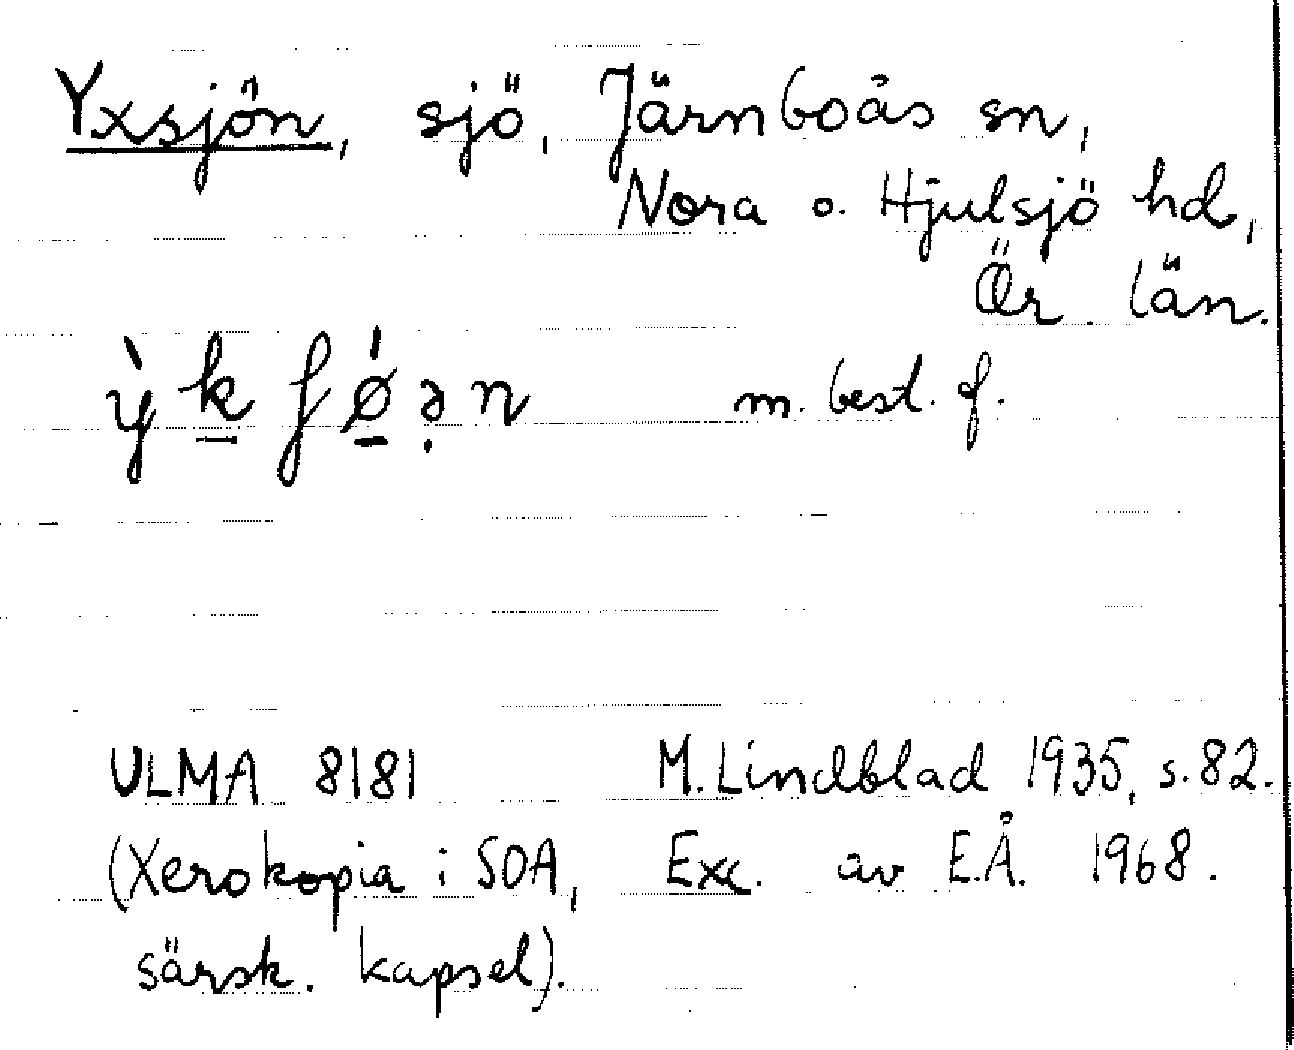 Yxsjön, sjö, Järnboås sn,
Nora o. Hjulsjö hd,
Ör län.
ỳk̲ʃǿ̲ə̣n m. best. f.
ULMA 8181 M. Lindblad 1935, s. 82.
(Xerokopia i SOA, Exc. av E.Å. 1968.
särsk. kapsel).